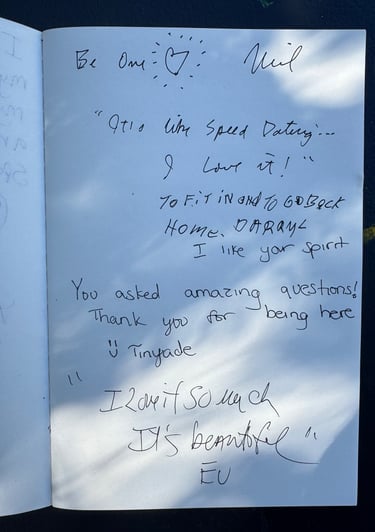 Be One ♡ Neil
"It's like Speed Dating...
I Love it!"
TO FIT IN and TO GO BACK
HOME. DARRYL
I like your spirit
You asked amazing questions!
Thank you for being here
Tinyade
"I Love it so much
It's beautiful"
EV